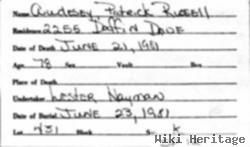 Name Andesen, Patrick Russell
Residence 2255 Daffin Dave
Date of Death June 21, 1981
Age 78 Sex Vault Box
Place of Death
Undertaker Lester Nayman
Date of Burial June 23, 1981
Lot 431 Block S k
Wiki Heritage